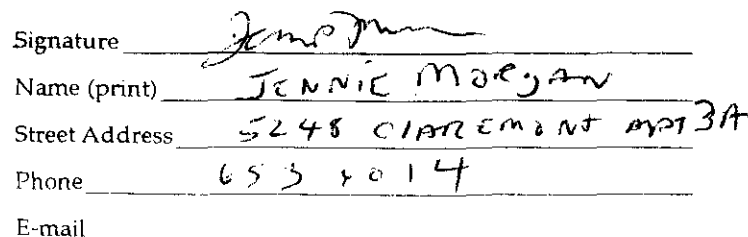 Signature
Name (print) JENNIE MORGAN
Street Address 5248 CLAREMONT APT 3A
Phone
E-mail